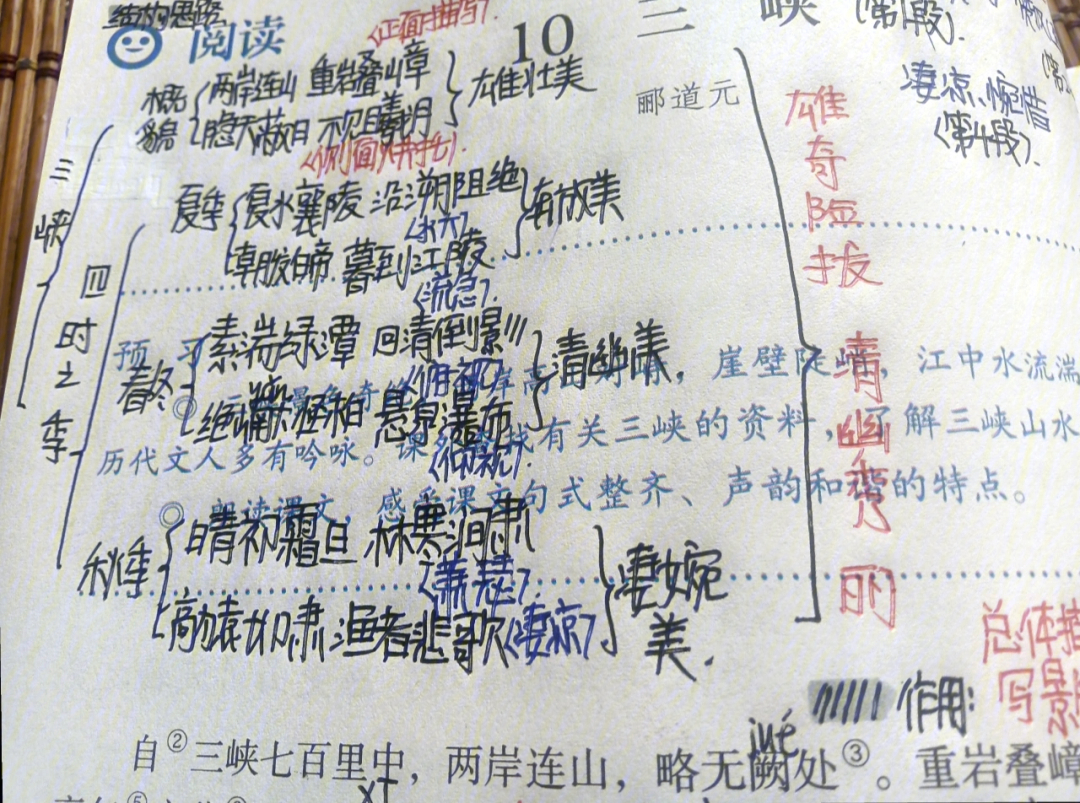 结构思路
阅读
(正面描写).
10 三 峡
(第1段).
郦道元
凄凉、惋惜
(第4段).
概貌
两岸连山 重岩叠嶂
隐天蔽日 不见曦月
雄壮美
(侧面烘托).
三峡
四时之季
夏季
夏水襄陵 沿溯阻绝
(水大)
朝发白帝 暮到江陵
(流急).
奔放美
春冬
素湍绿潭 回清倒影
绝巘 怪柏 悬泉瀑布
(俯视).
清幽美
秋季
晴初霜旦 林寒涧肃
(萧瑟).
高猿如啸 渔者悲歌(凄凉)
凄婉美.
雄奇险拔
清幽秀丽
预 习
崖壁陡峭，江中水流湍
历代文人多有吟咏。课外查找有关三峡的资料，了解三峡山水
◎ 朗读课文，感受课文句式整齐、声韵和 的特点。
总体描
写影
作用:
jué
自②三峡七百里中，两岸连山，略无阙处③。重岩叠嶂
xī